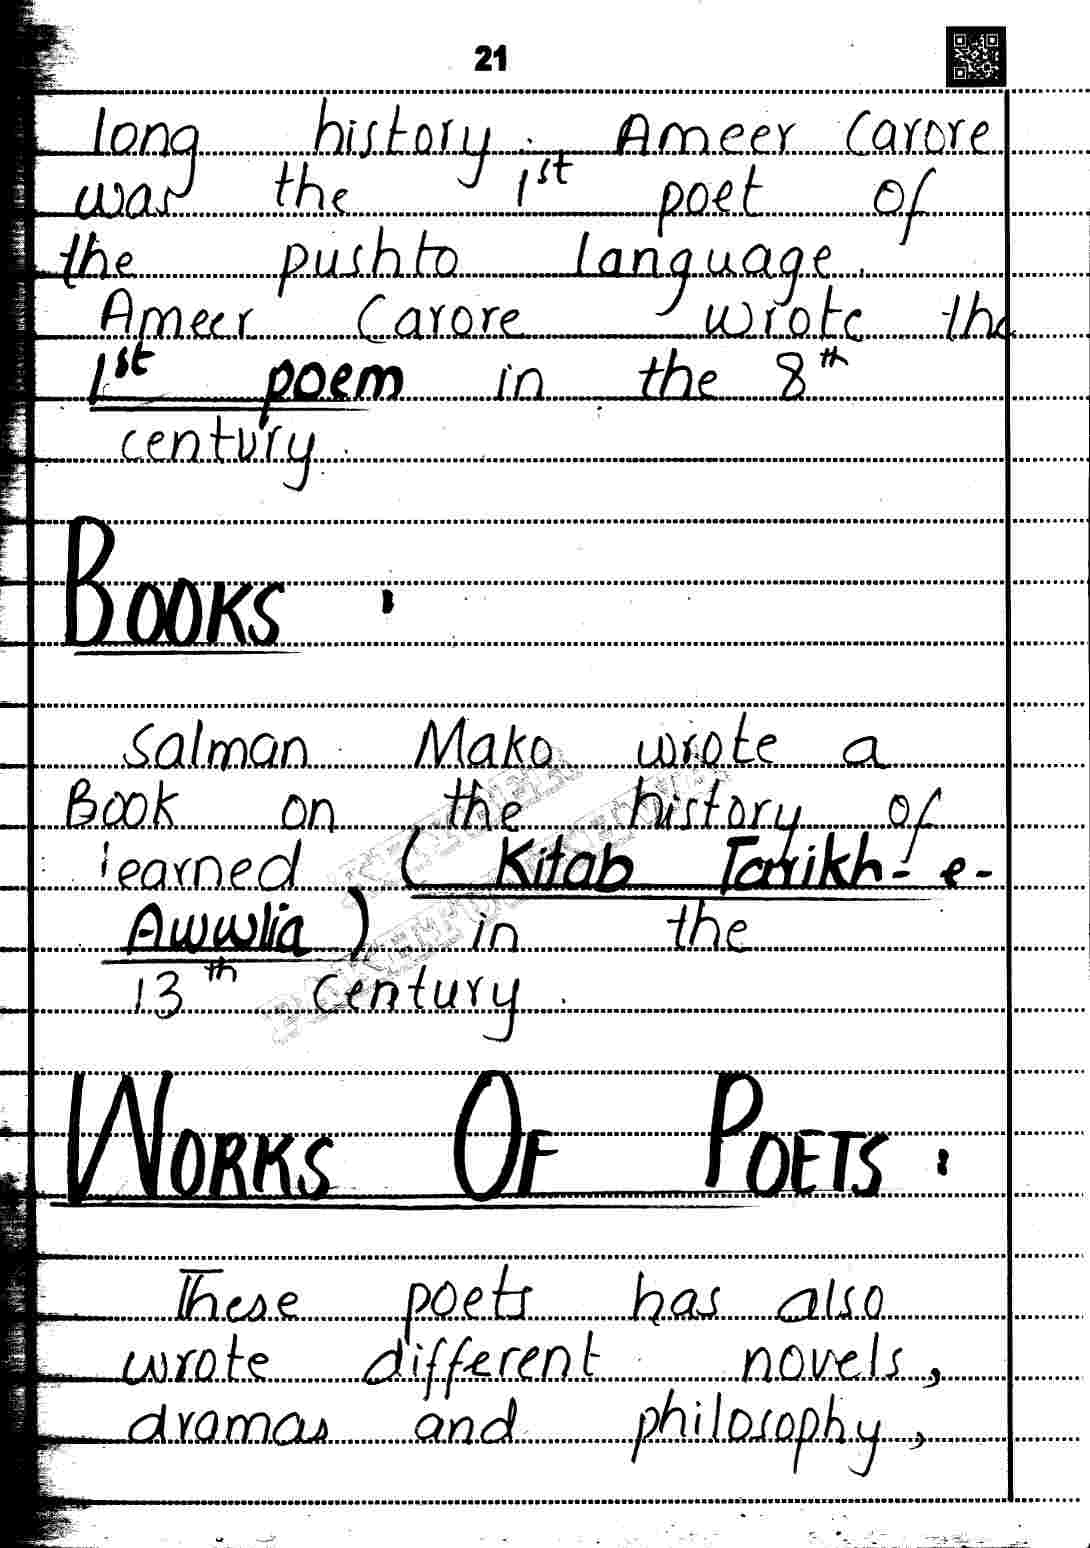 21
long history. Ameer Carore
was the 1st poet of
the pushto language.
Ameer Carore wrote the
1st poem in the 8th
century.
BOOKS :
Salman Mako wrote a
Book on the history of
learned ( Kitab Tarikh-e-
Awwlia ) in the
13th century.
WORKS OF POETS :
These poets has also
wrote different novels,
dramas and philosophy,